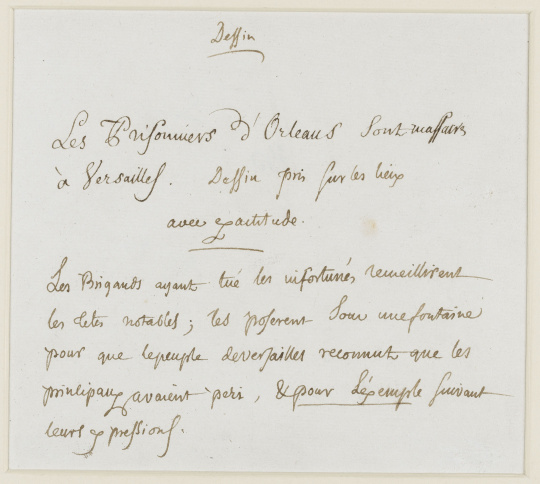 Dessin
Les Prisonniers d'Orleans sont massacrés
à Versailles. Dessin pris sur les lieux
avec exactitude.
Les Brigands ayant tué les infortunés recueillirent
les tetes notables; les poserent sous une fontaine
pour que le peuple de versailles reconnut que les
principaux avaient peri, & pour L'exemple suivant
leurs expressions.